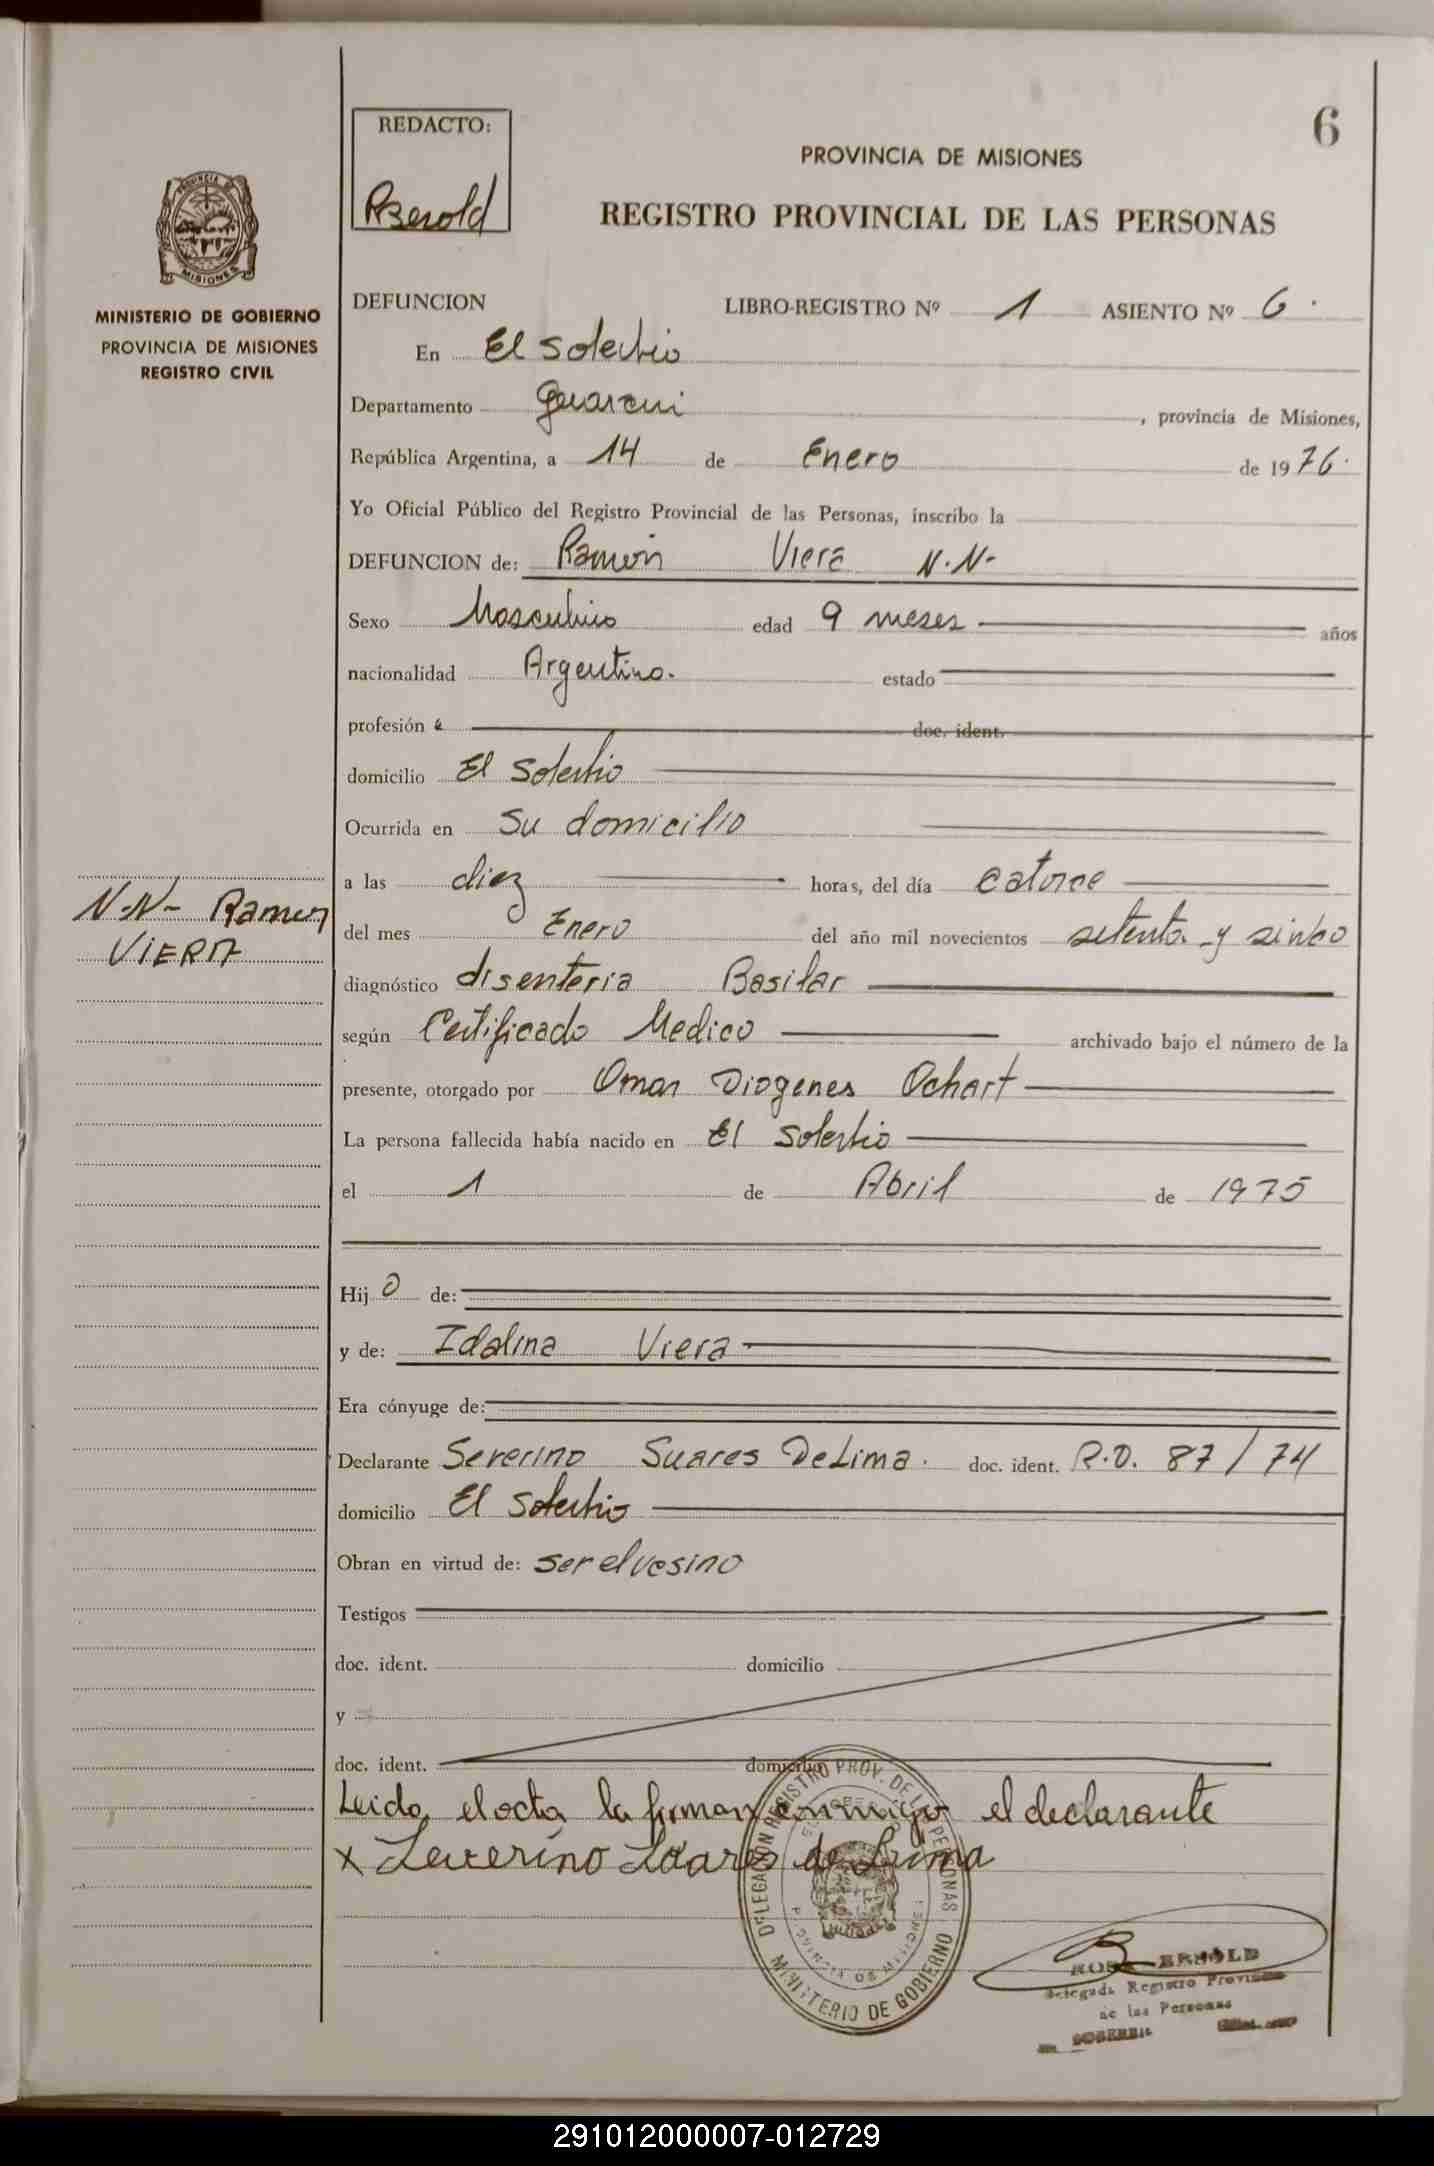 6
REDACTO:
RBerold
PROVINCIA DE MISIONES
REGISTRO PROVINCIAL DE LAS PERSONAS
PROVINCIA DE
MISIONES
MINISTERIO DE GOBIERNO
PROVINCIA DE MISIONES
REGISTRO CIVIL
DEFUNCION LIBRO-REGISTRO Nº 1 ASIENTO Nº 6.
En El Soberbio
Departamento Guarani, provincia de Misiones,
República Argentina, a 14 de Enero de 1976.
Yo Oficial Público del Registro Provincial de las Personas, inscribo la
DEFUNCION de: Ramón Viera N.N-
Sexo Masculino edad 9 meses años
nacionalidad Argentino. estado
profesión doc. ident.
domicilio El Soberbio
Ocurrida en Su domicilio
a las diez horas, del día catorce
N-N- Ramon
VIERA
del mes Enero del año mil novecientos setenta y sinco
diagnóstico disenteria Basilar
según Certificado Medico archivado bajo el número de la
presente, otorgado por Omar Diogenes Ochart
La persona fallecida había nacido en El Soberbio
el 1 de Abril de 1975
Hijo de:
y de: Idalina Viera
Era cónyuge de:
Declarante Severino Suares DeLima. doc. ident. R.D. 87/74
domicilio El Soberbio
Obran en virtud de: ser el vesino
Testigos
doc. ident. domicilio
y
doc. ident. domicilio
Leida el acta la firman conmigo el declarante
x Severino Soares de Lima
DELEGACION REGISTRO PROV. DE LAS PERSONAS
MINISTERIO DE GOBIERNO
PROVINCIA DE MISIONES
ROSA BEROLD
Delegada Registro Provincial
de las Personas
SOBERBIO
291012000007-012729